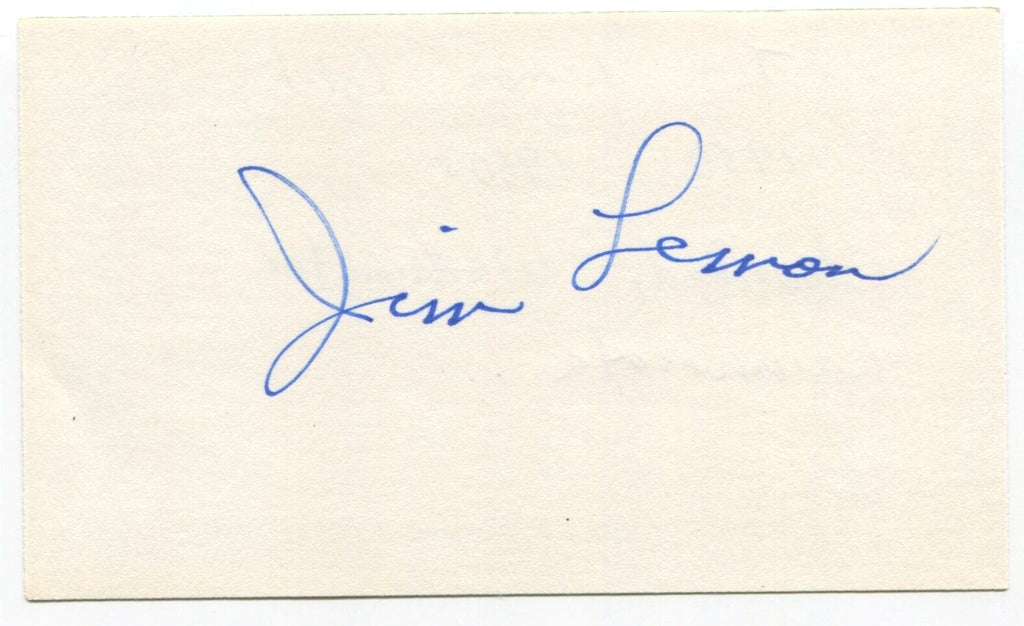 Jim Lemon